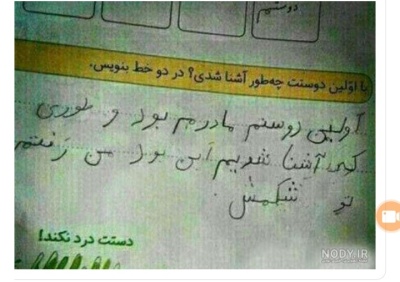 دوستم
با اوّلین دوستت چه‌طور آشنا شدی؟ در دو خط بنویس.
اولین دوستم مادرم بود و طوری
کی آشنا شدیم این بود من رفتم
تو شکمش.
دستت درد نکند!
NODY.IR